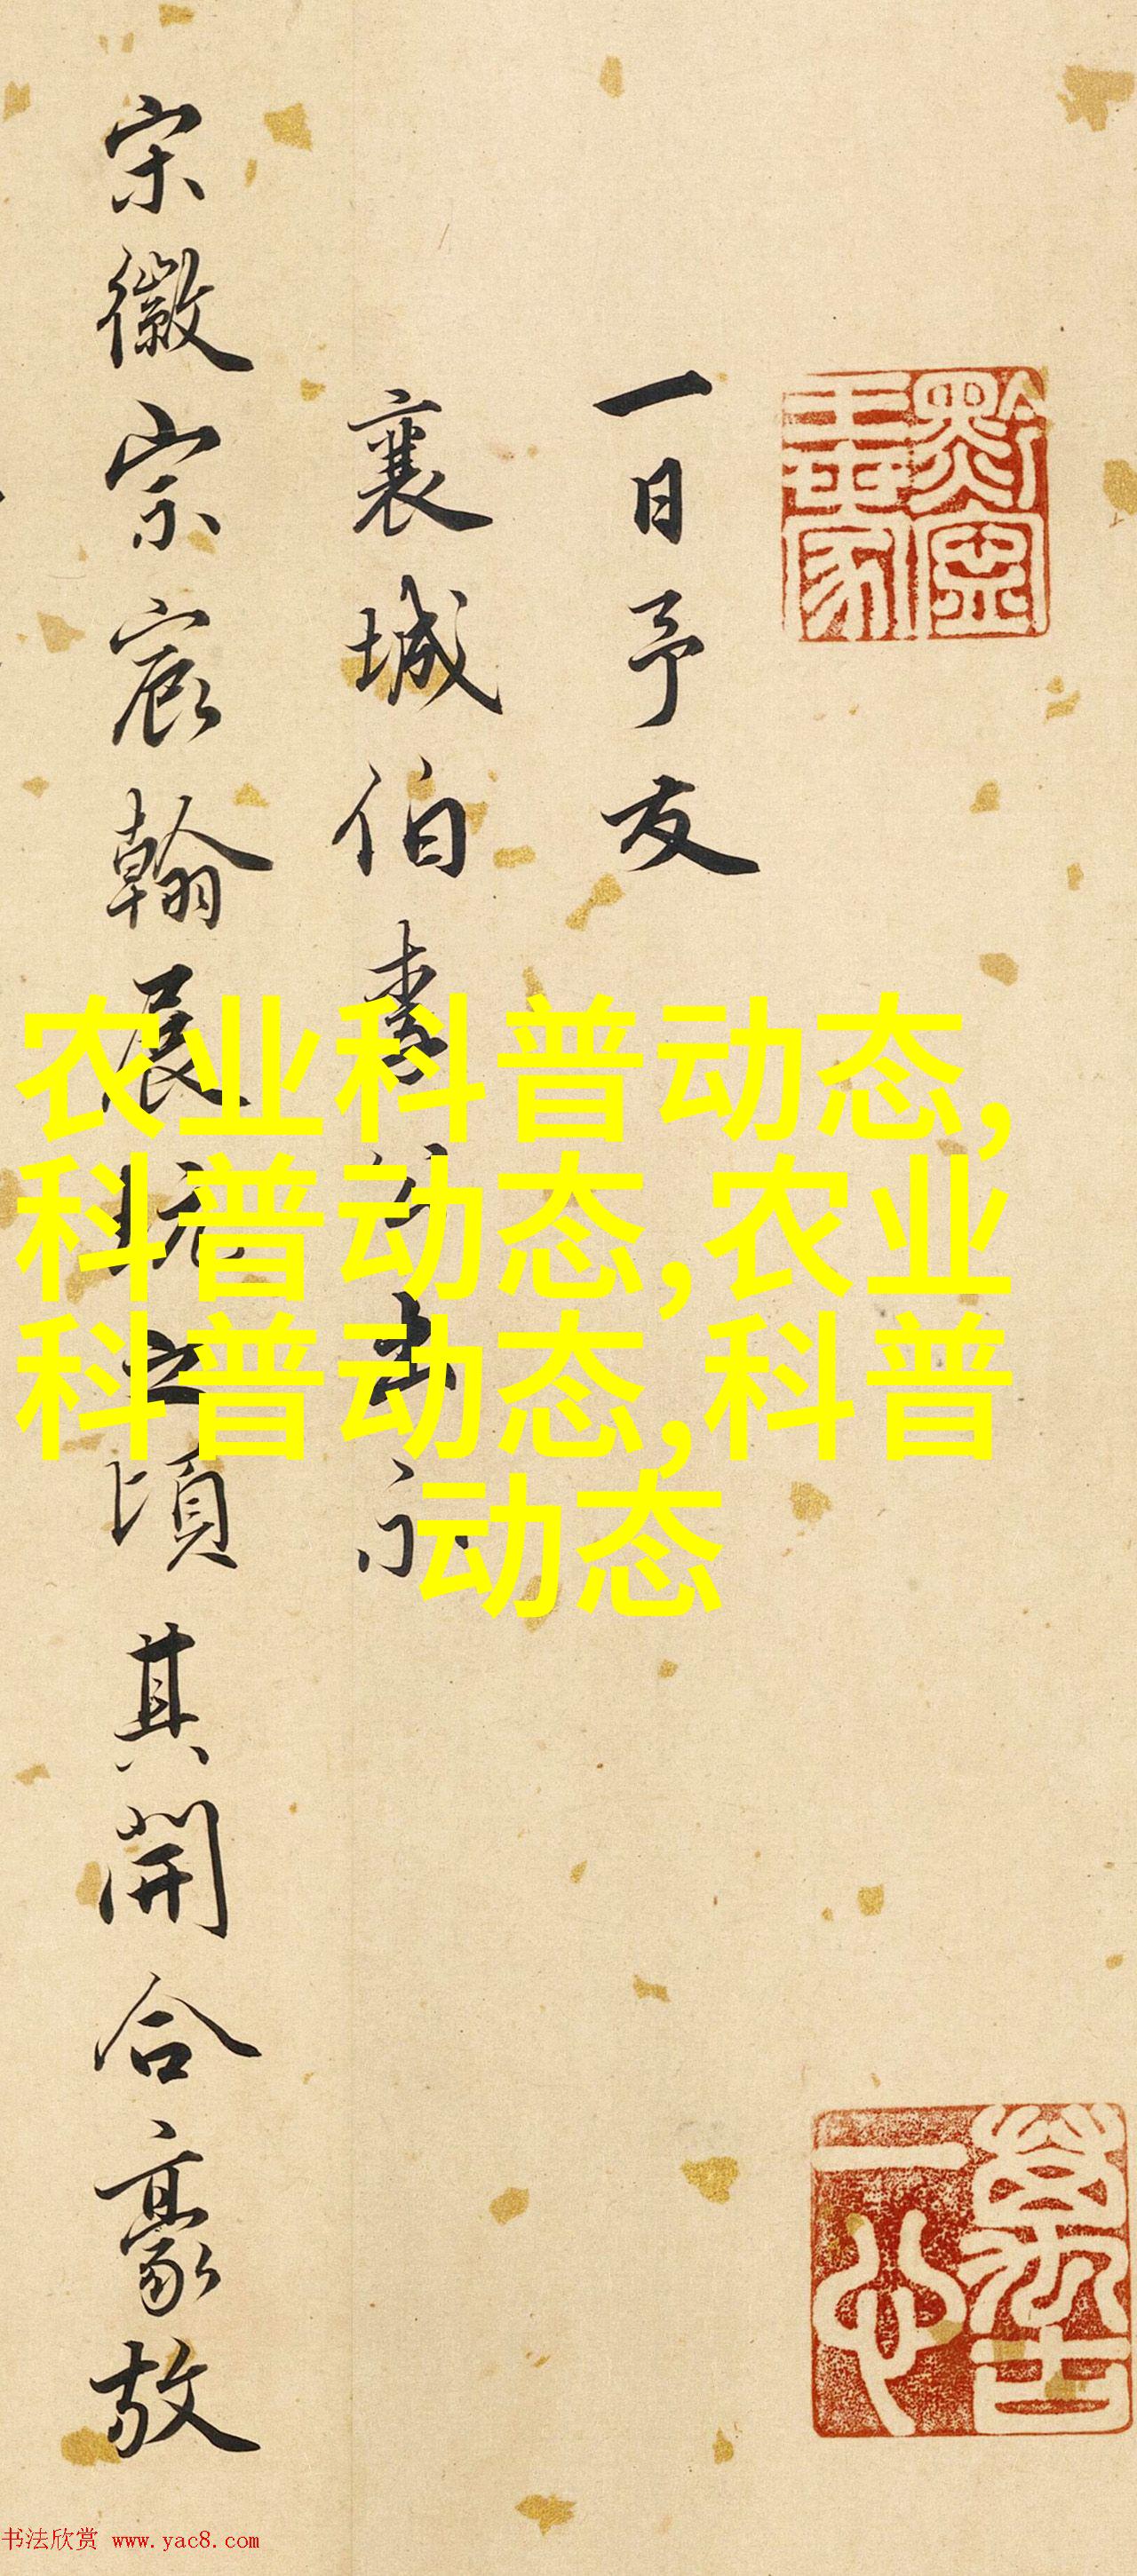 一日予友
襄城伯素公出示
宋徽宗宸翰展玩之頃其開合豪放
农业科普动态,
科普动态,农业
科普动态,科普
动态
书法欣赏 www.yac8.com